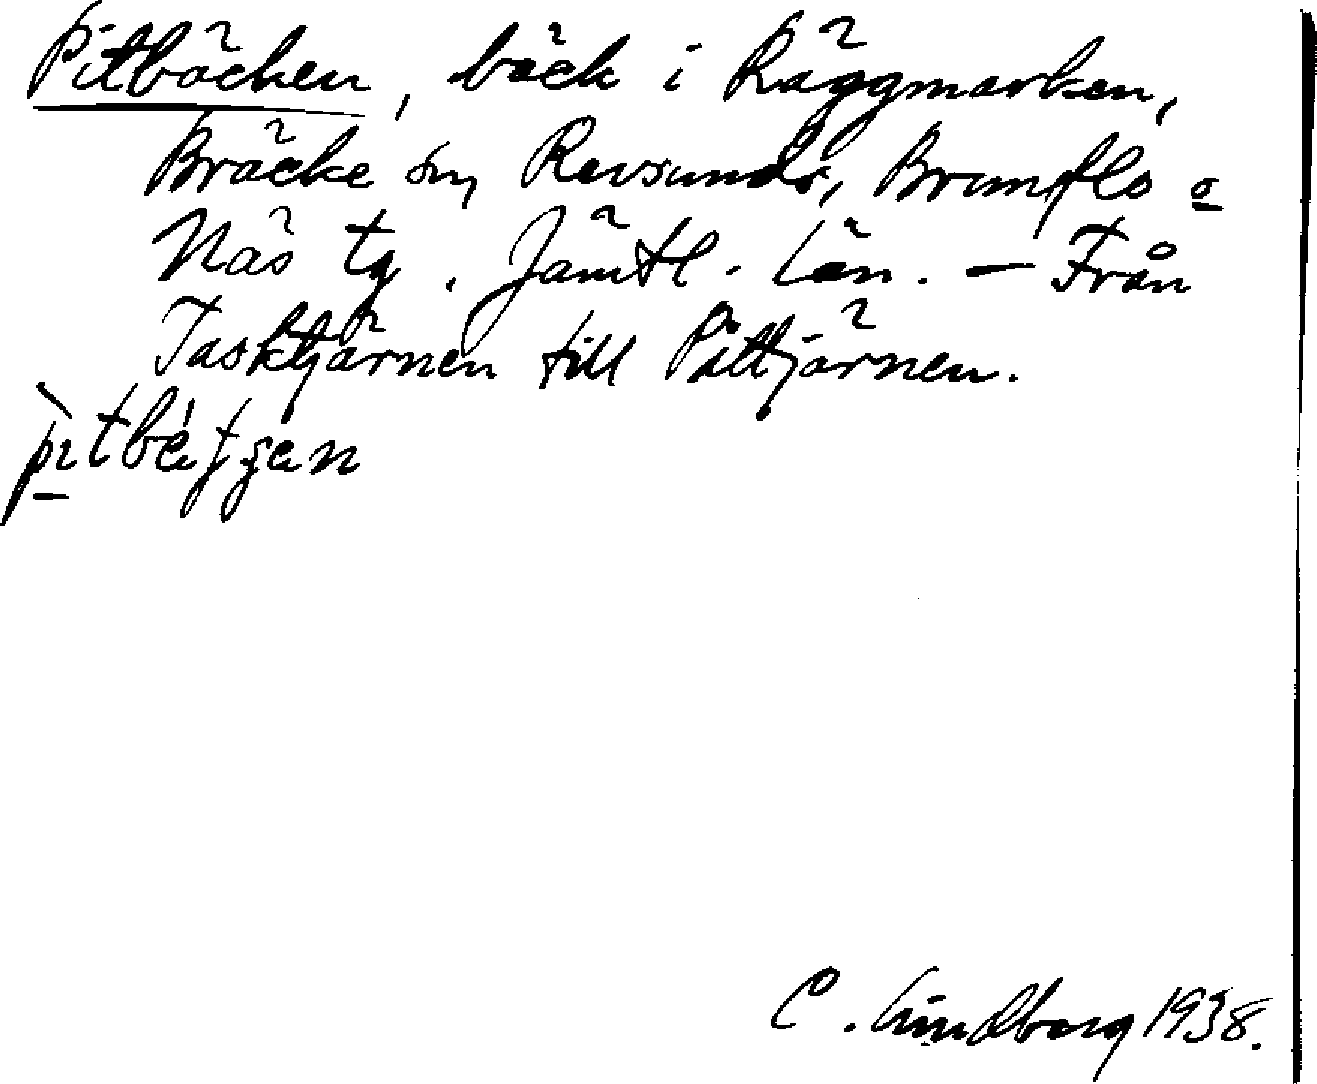 Pitbäcken, bäck i Räggmarken,
Bräcke sn, Revsunds, Brunflo o
Näs tg. Jämtl. län. — Från
Tasktjärnen till Pittjärnen.
C. Lindborg 1938.